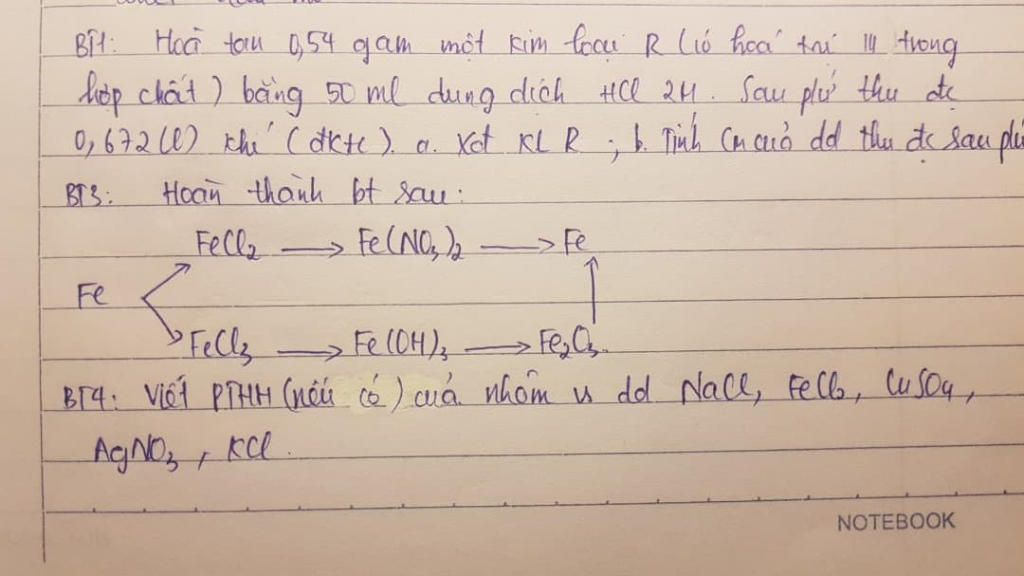 BT1: Hoà tan 0,54 gam một kim loại R (có hoá trị III trong
hợp chất) bằng 50 ml dung dịch HCl 2M. Sau pứ thu đc
0,672 (l) khí (đktc). a. Xđ KL R; b. Tính CM của dd thu đc sau pứ
BT3: Hoàn thành bt sau:
FeCl2 → Fe(NO3)2 → Fe
Fe
FeCl3 → Fe(OH)3 → Fe2O3
BT4: Viết PTHH (nếu có) của nhôm vs dd NaCl, FeCl3, CuSO4,
AgNO3, KCl.
NOTEBOOK